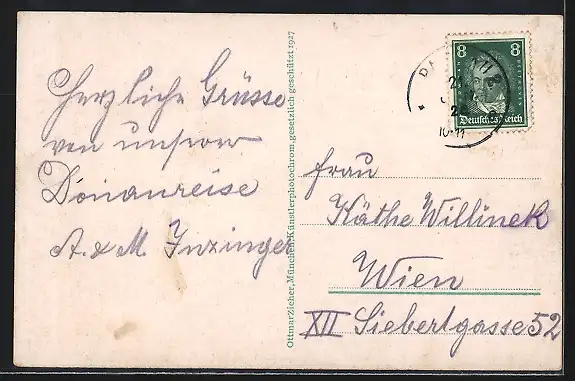 Herzliche Grüsse
von unserer
Donaureise
A. & M. Inzinger
Ottmar Zieher, München, Künstlerphotochrom, gesetzlich geschützt 1927
8 8
Deutsches Reich
10-11
Frau
Käthe Willinek
Wien
XII Siebertgasse 52